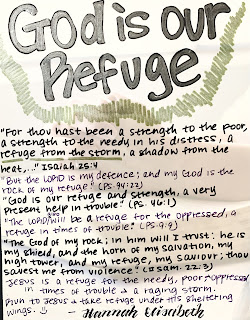 God is our
Refuge
"For thou hast been a strength to the poor,
a strength to the needy in his distress, a
refuge from the storm, a shadow from the
heat,..." Isaiah 25:4
"But the LORD is my defence; and my God is the
rock of my refuge." (PS. 94:22)
"God is our refuge and strength, a very
present help in trouble." (PS. 46:1)
"The LORD will be a refuge for the oppressed, a
refuge in times of trouble." (PS. 9:9)
"The God of my rock; in him will I trust: he is
my shield, and the horn of my salvation, my
high tower, and my refuge, my saviour; thou
savest me from violence." (II Sam. 22:3)
Jesus is a refuge for the needy, poor, oppressed
in times of trouble + a raging storm.
Run to Jesus + take refuge under His sheltering
wings.
Hannah Elisabeth